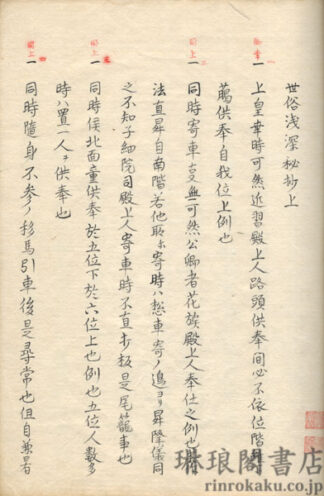 世俗浅深秘抄上
一上皇幸時可然近習殿上人路頭供奉間必不依位階
﨟供奉ノ自我位上例也
一同時寄車事無可然公卿者花族殿上人奉仕之例也
法直昇自南階若他所ニ寄時ハ懸車寄ノ邊ヨリ昇降儀同
之不知子細院司殿上人寄車時不直打板是尾籠事也
一同時侯北面童供奉於五位下於六位上也例也五位人數多
時ハ置一人ヲ供奉也
一同時随身不参ノ移馬引車後是尋常也但自兼召
同上
同上
同上
琳琅閣書店
rinrokaku.co.jp